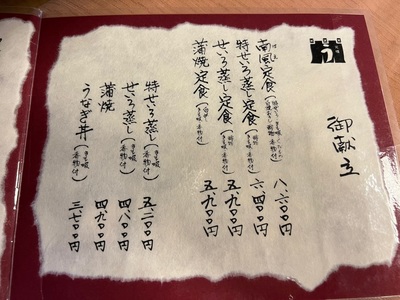 う
御献立
南風定食 八、六〇〇円
特せいろ蒸し定食 六、四〇〇円
せいろ蒸し定食 五、九〇〇円
蒲焼定食 五、九〇〇円
特せいろ蒸し（きも吸 香物付） 五、二〇〇円
せいろ蒸し（きも吸 香物付） 四、八〇〇円
蒲焼 四、九〇〇円
うなぎ丼（きも吸 香物付） 三、七〇〇円